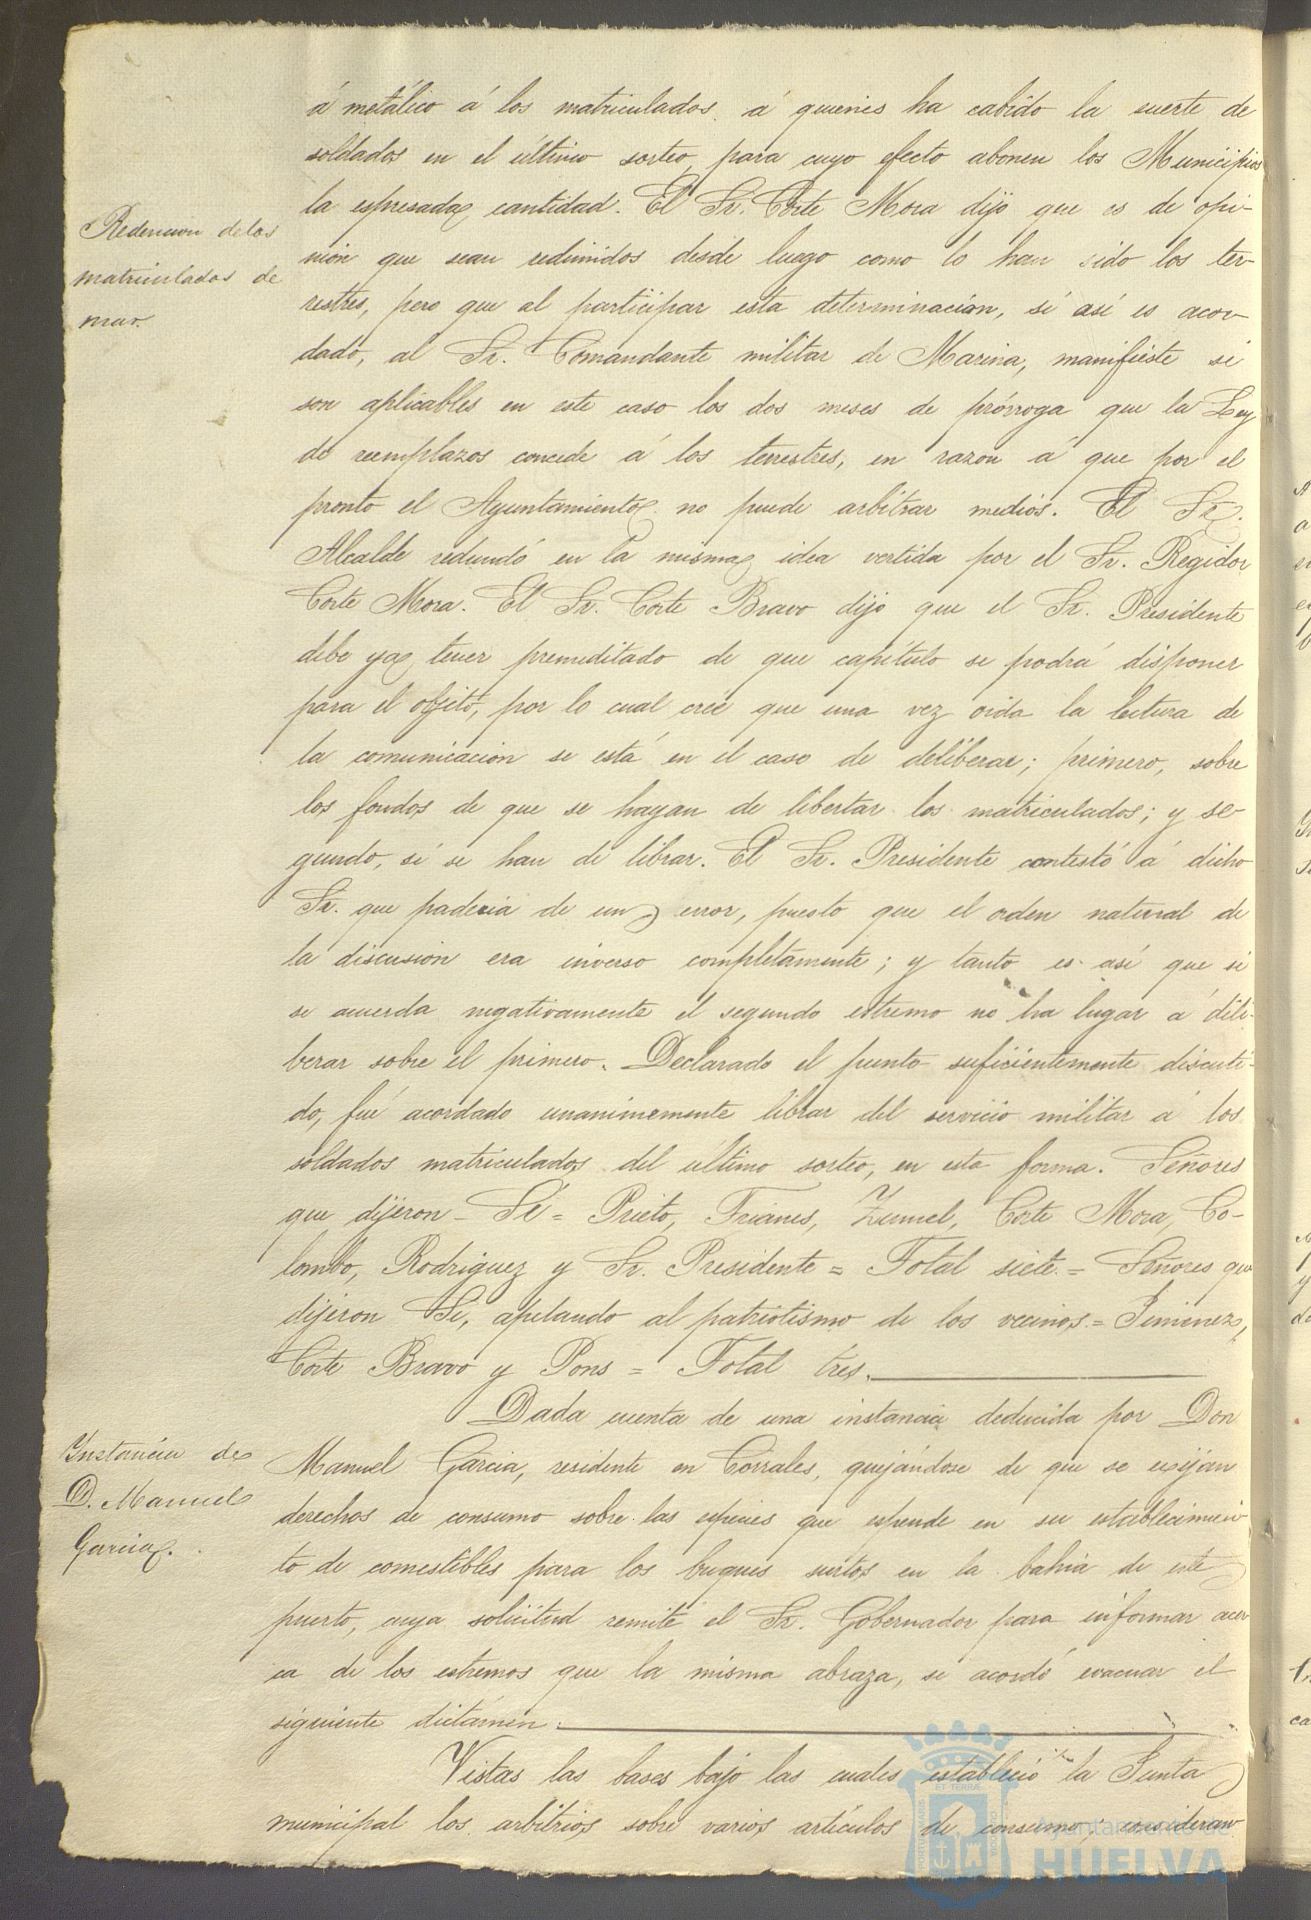 á metálico á los matriculados á quienes ha cabido la suerte de
soldados en el último sorteo, para cuyo efecto abonen los Municipios
la espresada cantidad. El Sr. Corte Mora dijo que es de opi-
Redencion de los
matriculados de
mar.
nion que sean redimidos desde luego como lo han sido los ter-
restres, pero que al participar esta determinacion, si así es acor-
dado, al Sr. Comandante militar de Marina, manifieste si
son aplicables en este caso los dos meses de prórroga que la Ley
de reemplazos concede á los terrestres, en razon á que por el
pronto el Ayuntamiento no puede arbitrar medios. El Sr.
Alcalde redundó en la misma idea vertida por el Sr. Regidor
Corte Mora. El Sr. Corte Bravo dijo que el Sr. Presidente
debe ya tener premeditado de que capítulo se podrá disponer
para el objeto, por lo cual cree que una vez oida la lectura de
la comunicacion se está en el caso de deliberar; primero, sobre
los fondos de que se hayan de libertar los matriculados; y se-
gundo, si se han de librar. El Sr. Presidente contestó á dicho
Sr. que padecia de un error, puesto que el orden natural de
la discusion era inverso completamente; y tanto es así que si
se acuerda negativamente el segundo estremo no ha lugar á deli-
berar sobre el primero. Declarado el punto suficientemente discuti-
do, fué acordado unanimemente librar del servicio militar á los
soldados matriculados del último sorteo, en esta forma. Señores
que dijeron - Sí = Prieto, Trianes, Zunnel, Corte Mora, Co-
lombo, Rodriguez y Sr. Presidente = Total siete = Señores que
dijeron Si, apelando al patriotismo de los vecinos = Jimenez,
Corte Bravo y Pons = Total tres.
Dada cuenta de una instancia deducida por Don
Instancia de
D. Manuel
Garcia.
Manuel Garcia, residente en Corrales, quejándose de que se exijan
derechos de consumo sobre las especies que espende en su establecimien
to de comestibles para los buques surtos en la bahia de este
puerto, cuya solicitud remite el Sr. Gobernador para informar acer
ca de los estremos que la misma abraza, se acordó evacuar el
siguiente dictámen.
Vistas las bases bajo las cuales estableció la Junta
municipal los arbitrios sobre varios artículos de consumo; consideran
Ayuntamiento de
HUELVA